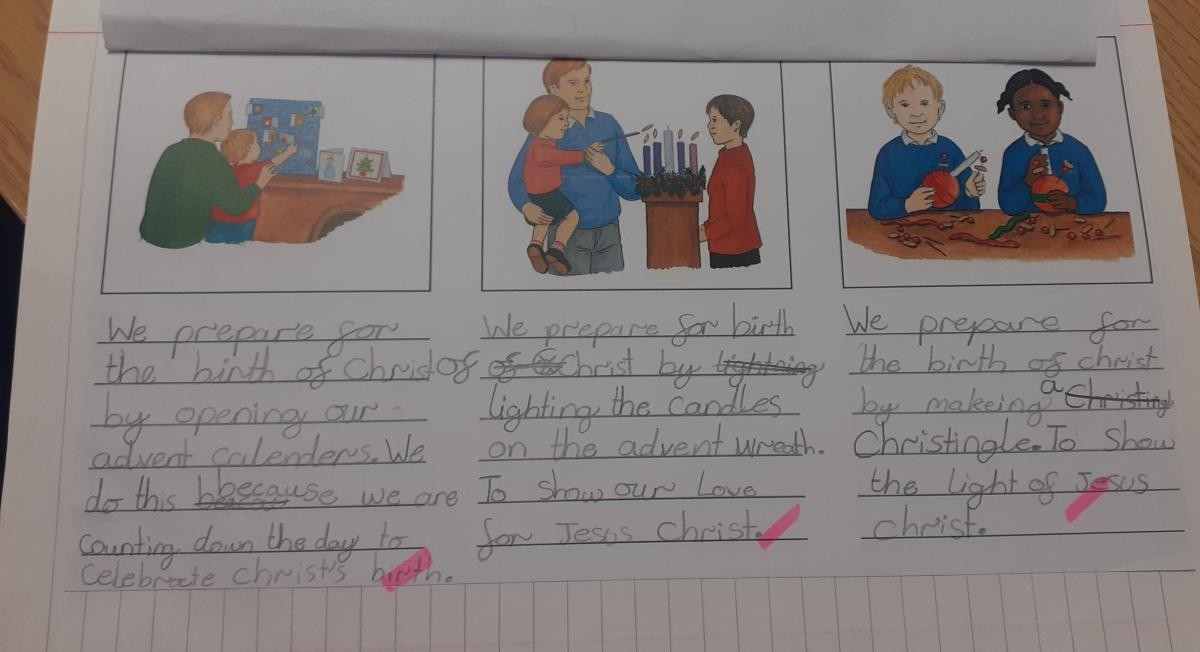 We prepare for
the birth of Christ
by opening our
advent calenders. We
do this because we are
counting down the day to
celebrate Christ's birth.
We prepare for birth
of Christ by
lighting the candles
on the advent wreath.
To show our Love
for Jesus Christ.
We prepare for
the birth of christ
by makeing a
Christingle. To show
the light of Jesus
christ.